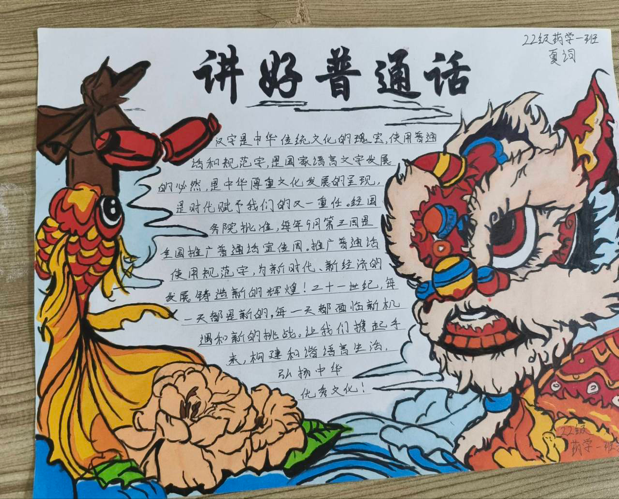 讲好普通话
22级药学一班
夏词
汉字是中华传统文化的瑰宝,使用普通
话和规范字,是国家语言文字发展
的必然,是中华厚重文化发展的呈现,
是时代赋予我们的又一重任。经国
务院批准,每年9月第三周是
全国推广普通话宣传周。推广普通话
使用规范字,为新时代、新经济的
发展铸造新的辉煌!二十一世纪,每
一天都是新的,每一天都面临新机
遇和新的挑战。让我们携起手
来,构建和谐语言生活,
弘扬中华
优秀文化!
22级
药学一班